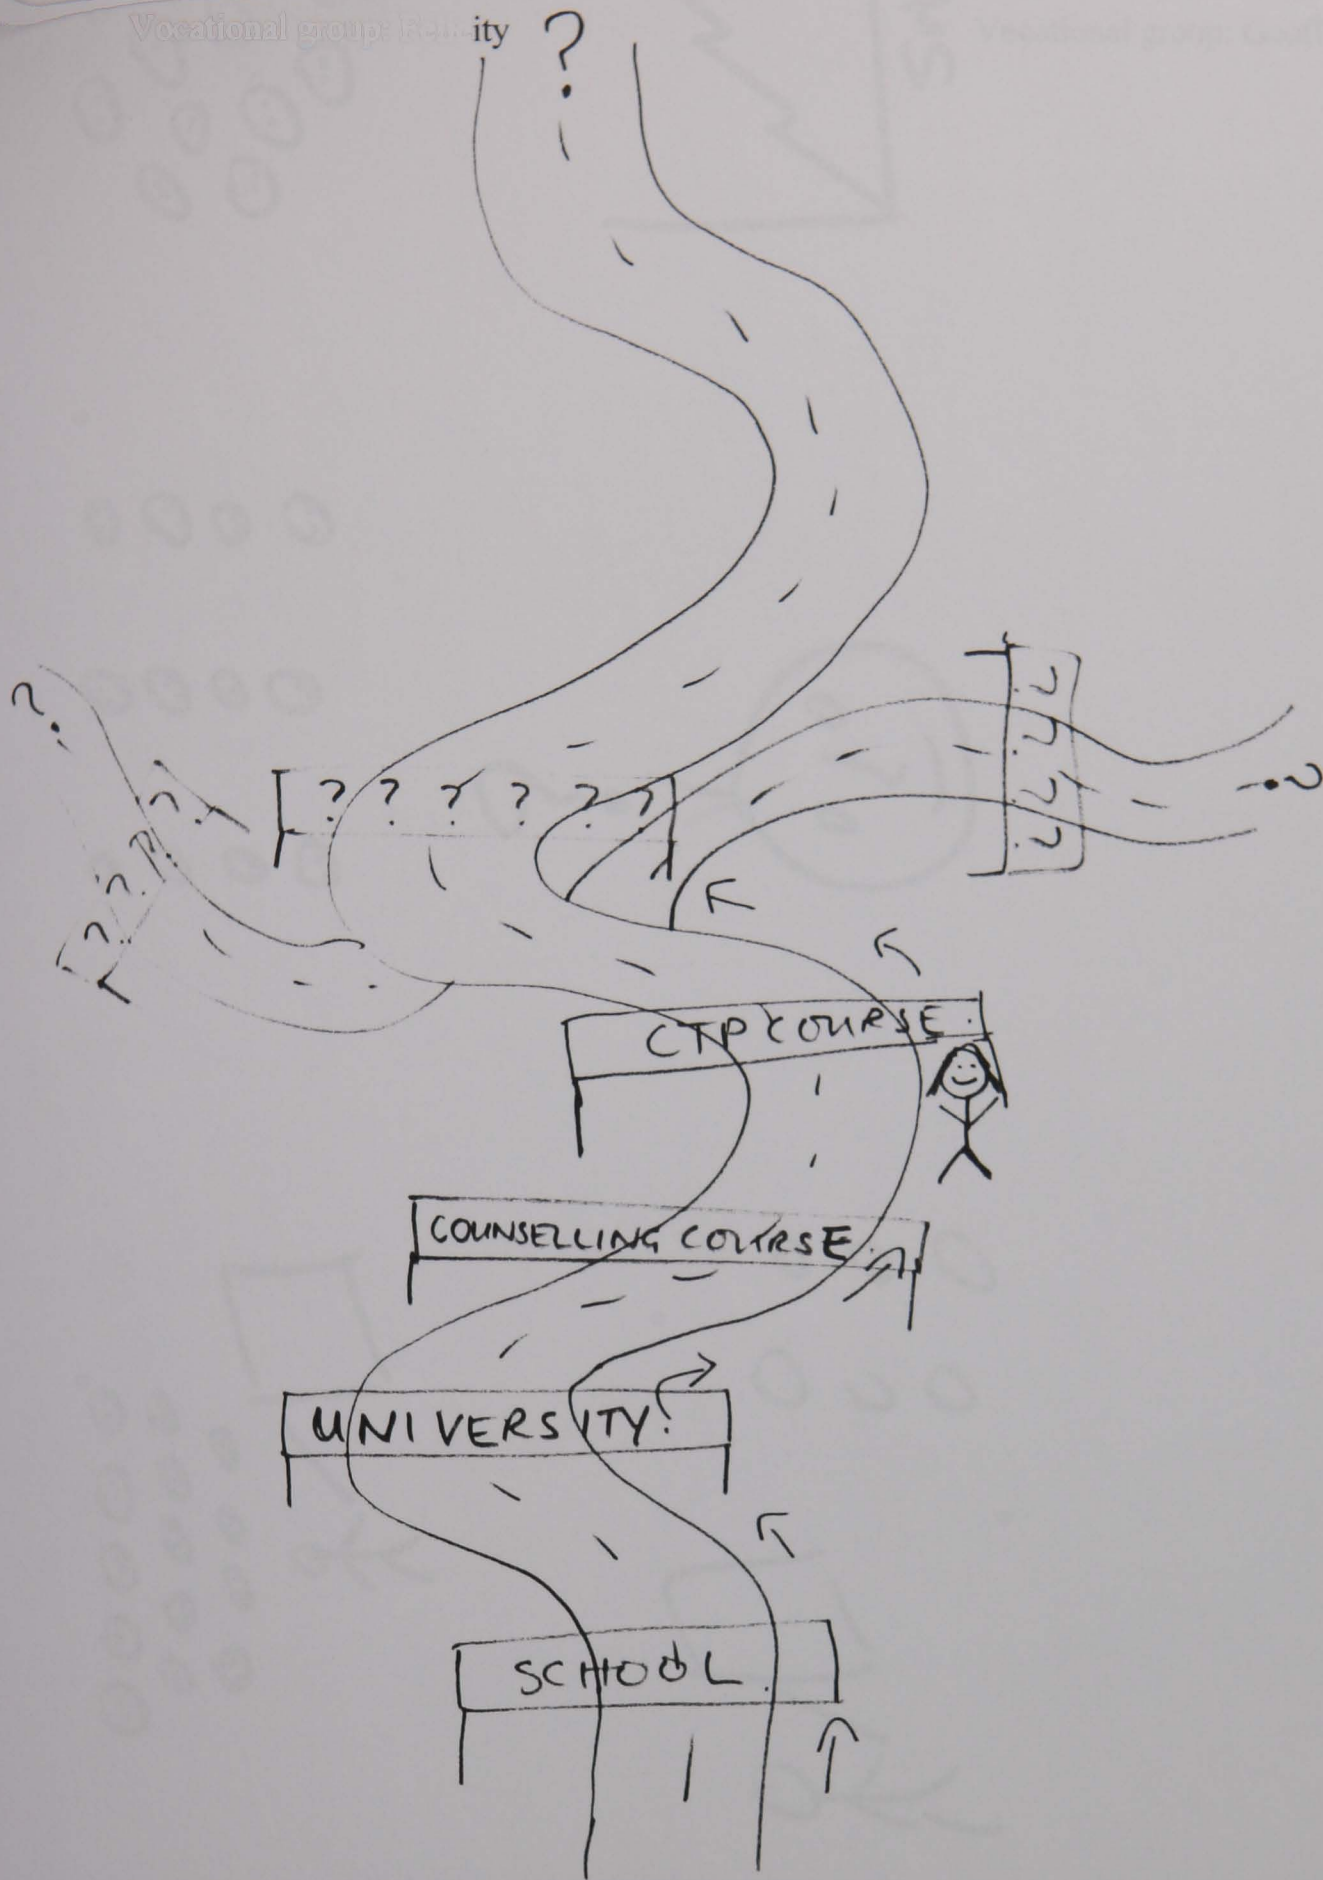 Vocational group:
ity ?
?
? ? ? ? ? ?
? ? ? ?
? ? ? ?
?
?
CTP COURSE.
COUNSELLING COURSE.
UNIVERSITY.
SCHOOL.